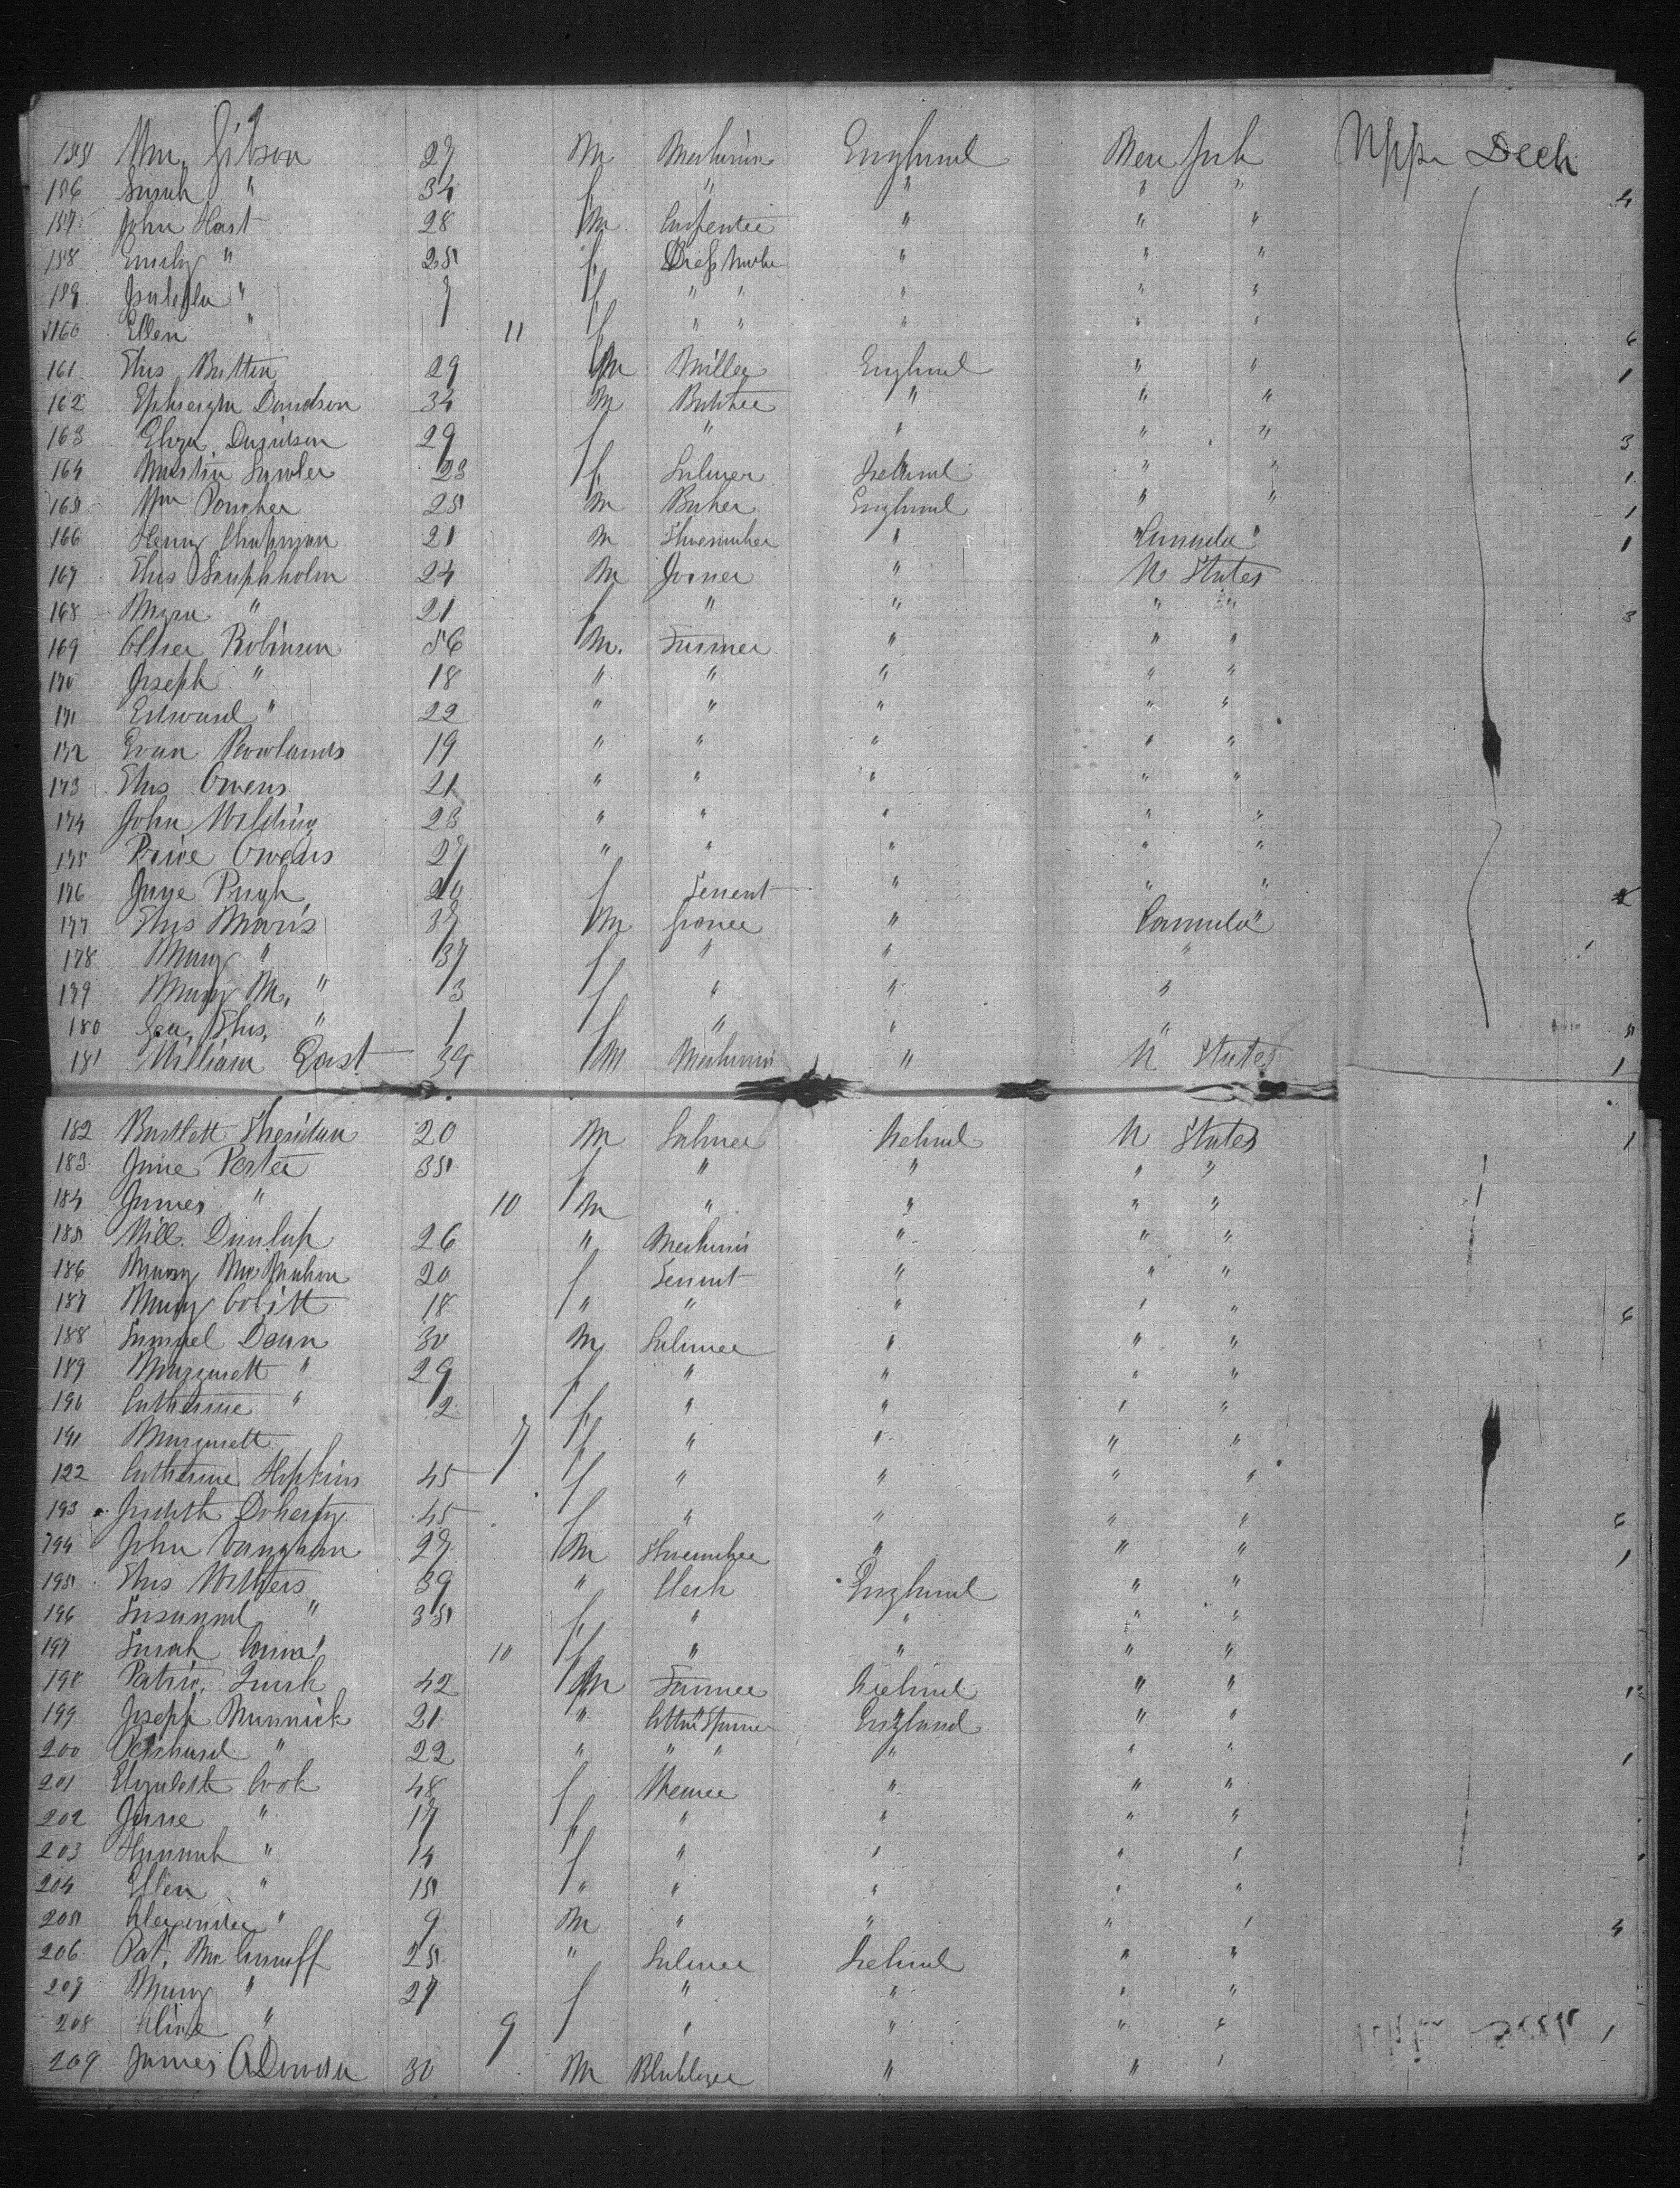 155 Wm. Gibson 27 M Mechanic England New York Upper Deck
156 Sarah " 34 f " " " " 4
157 John Hast 28 M Carpenter " " "
158 Emily " 25 f Dress Maker " " "
159 Isabella " 7 f " " " " "
160 Ellen " 11 f " " " " " 6
161 Thos 29 M Miller England " " 1
162 Ephraigm Davidson 34 M Butcher " " "
163 Eliza Davidson 29 f " " " " 3
164 Martin Lawler 23 f Labourer Ireland " " 1
165 Wm 25 M Baker England " " 1
166 Henry Chapman 21 M Shoemaker " "Canada" 1
167 Thos 24 M Joiner " U States
168 Myra " 21 f " " " " 3
169 Oliver Robinson 56 M. Farmer " " "
170 Joseph " 18 " " " " "
171 Edward " 22 " " " " "
172 Evan Rowlands 19 " " " " "
173 Thos Owens 21 " " " " "
174 John Wilding 23 " " " " "
175 Price Owens 27 " " " " "
176 Jane Pugh 20 f Servent " " "
177 Thos Morris 37 M Joiner " Canada"
178 Mary " 37 f " " "
179 Mary M. " 3 f " " "
180 Geo. Thos. " 1 f " " " 5
181 William East 39 M Mechanic " U States 1
182 Bartlett Sheridan 20 M Labourer Ireland U States 1
183 Jane Porter 35 f " " " "
184 James " 10 M " " " "
185 Will. Dunlap 26 " Mechanic " " "
186 Mary McMahon 20 f Servent " " "
187 Mary 18 " " " " " 6
188 Samuel Dean 30 M Labourer " " "
189 Margarett " 29 f " " " "
190 Catherine " 2 f " " " "
191 Margarett 7 f " " " "
122 Catherine Hopkins 45 f " " " "
193 Judith Doherty 45 f " " " " 6
194 John Vaughan 27 M Shoemaker " " " 1
195 Thos Withers 39 " Clerk England " "
196 Susannah " 35 f " " " "
197 Sarah " 10 f " " " "
198 Patric. Quirk 42 M Farmer Ireland " "
199 Joseph Munnick 21 " Cotton Spinner England " "
200 Richard " 22 " " " " " " 1
201 Elizabeth Cook 48 f Weaver " " "
202 Jane " 17 f " " " "
203 Hannah " 14 f " " " "
204 Ellen " 15 " " " " "
205 Alexander " 9 M " " " " 4
206 Pat. 25 " Labourer Ireland " "
207 Mary " 27 f " " " "
208 Alice " 9 f " " " " 1
209 James 30 M " " "